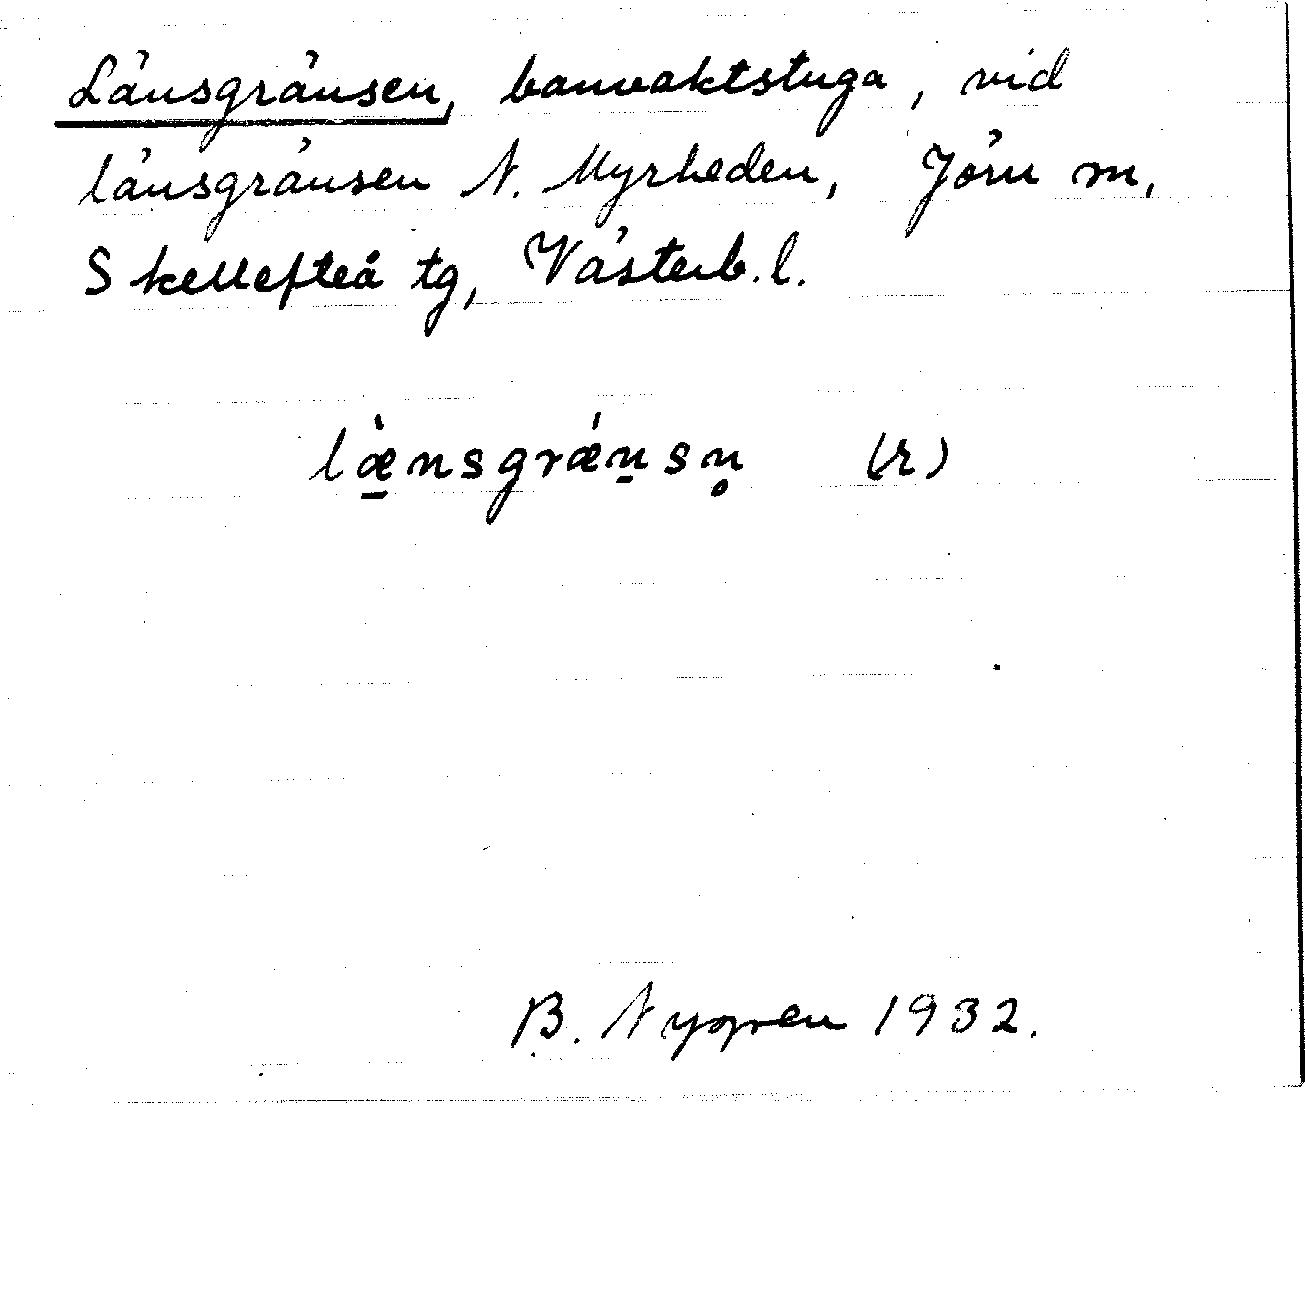 Länsgränsen, banvaktstuga, vid
länsgränsen N. Myrheden, Jörn sn,
Skellefteå tg, Västerb. l.
læ̠̀nsgrǽn̠sn̥ (r)
B. Nygren 1932.